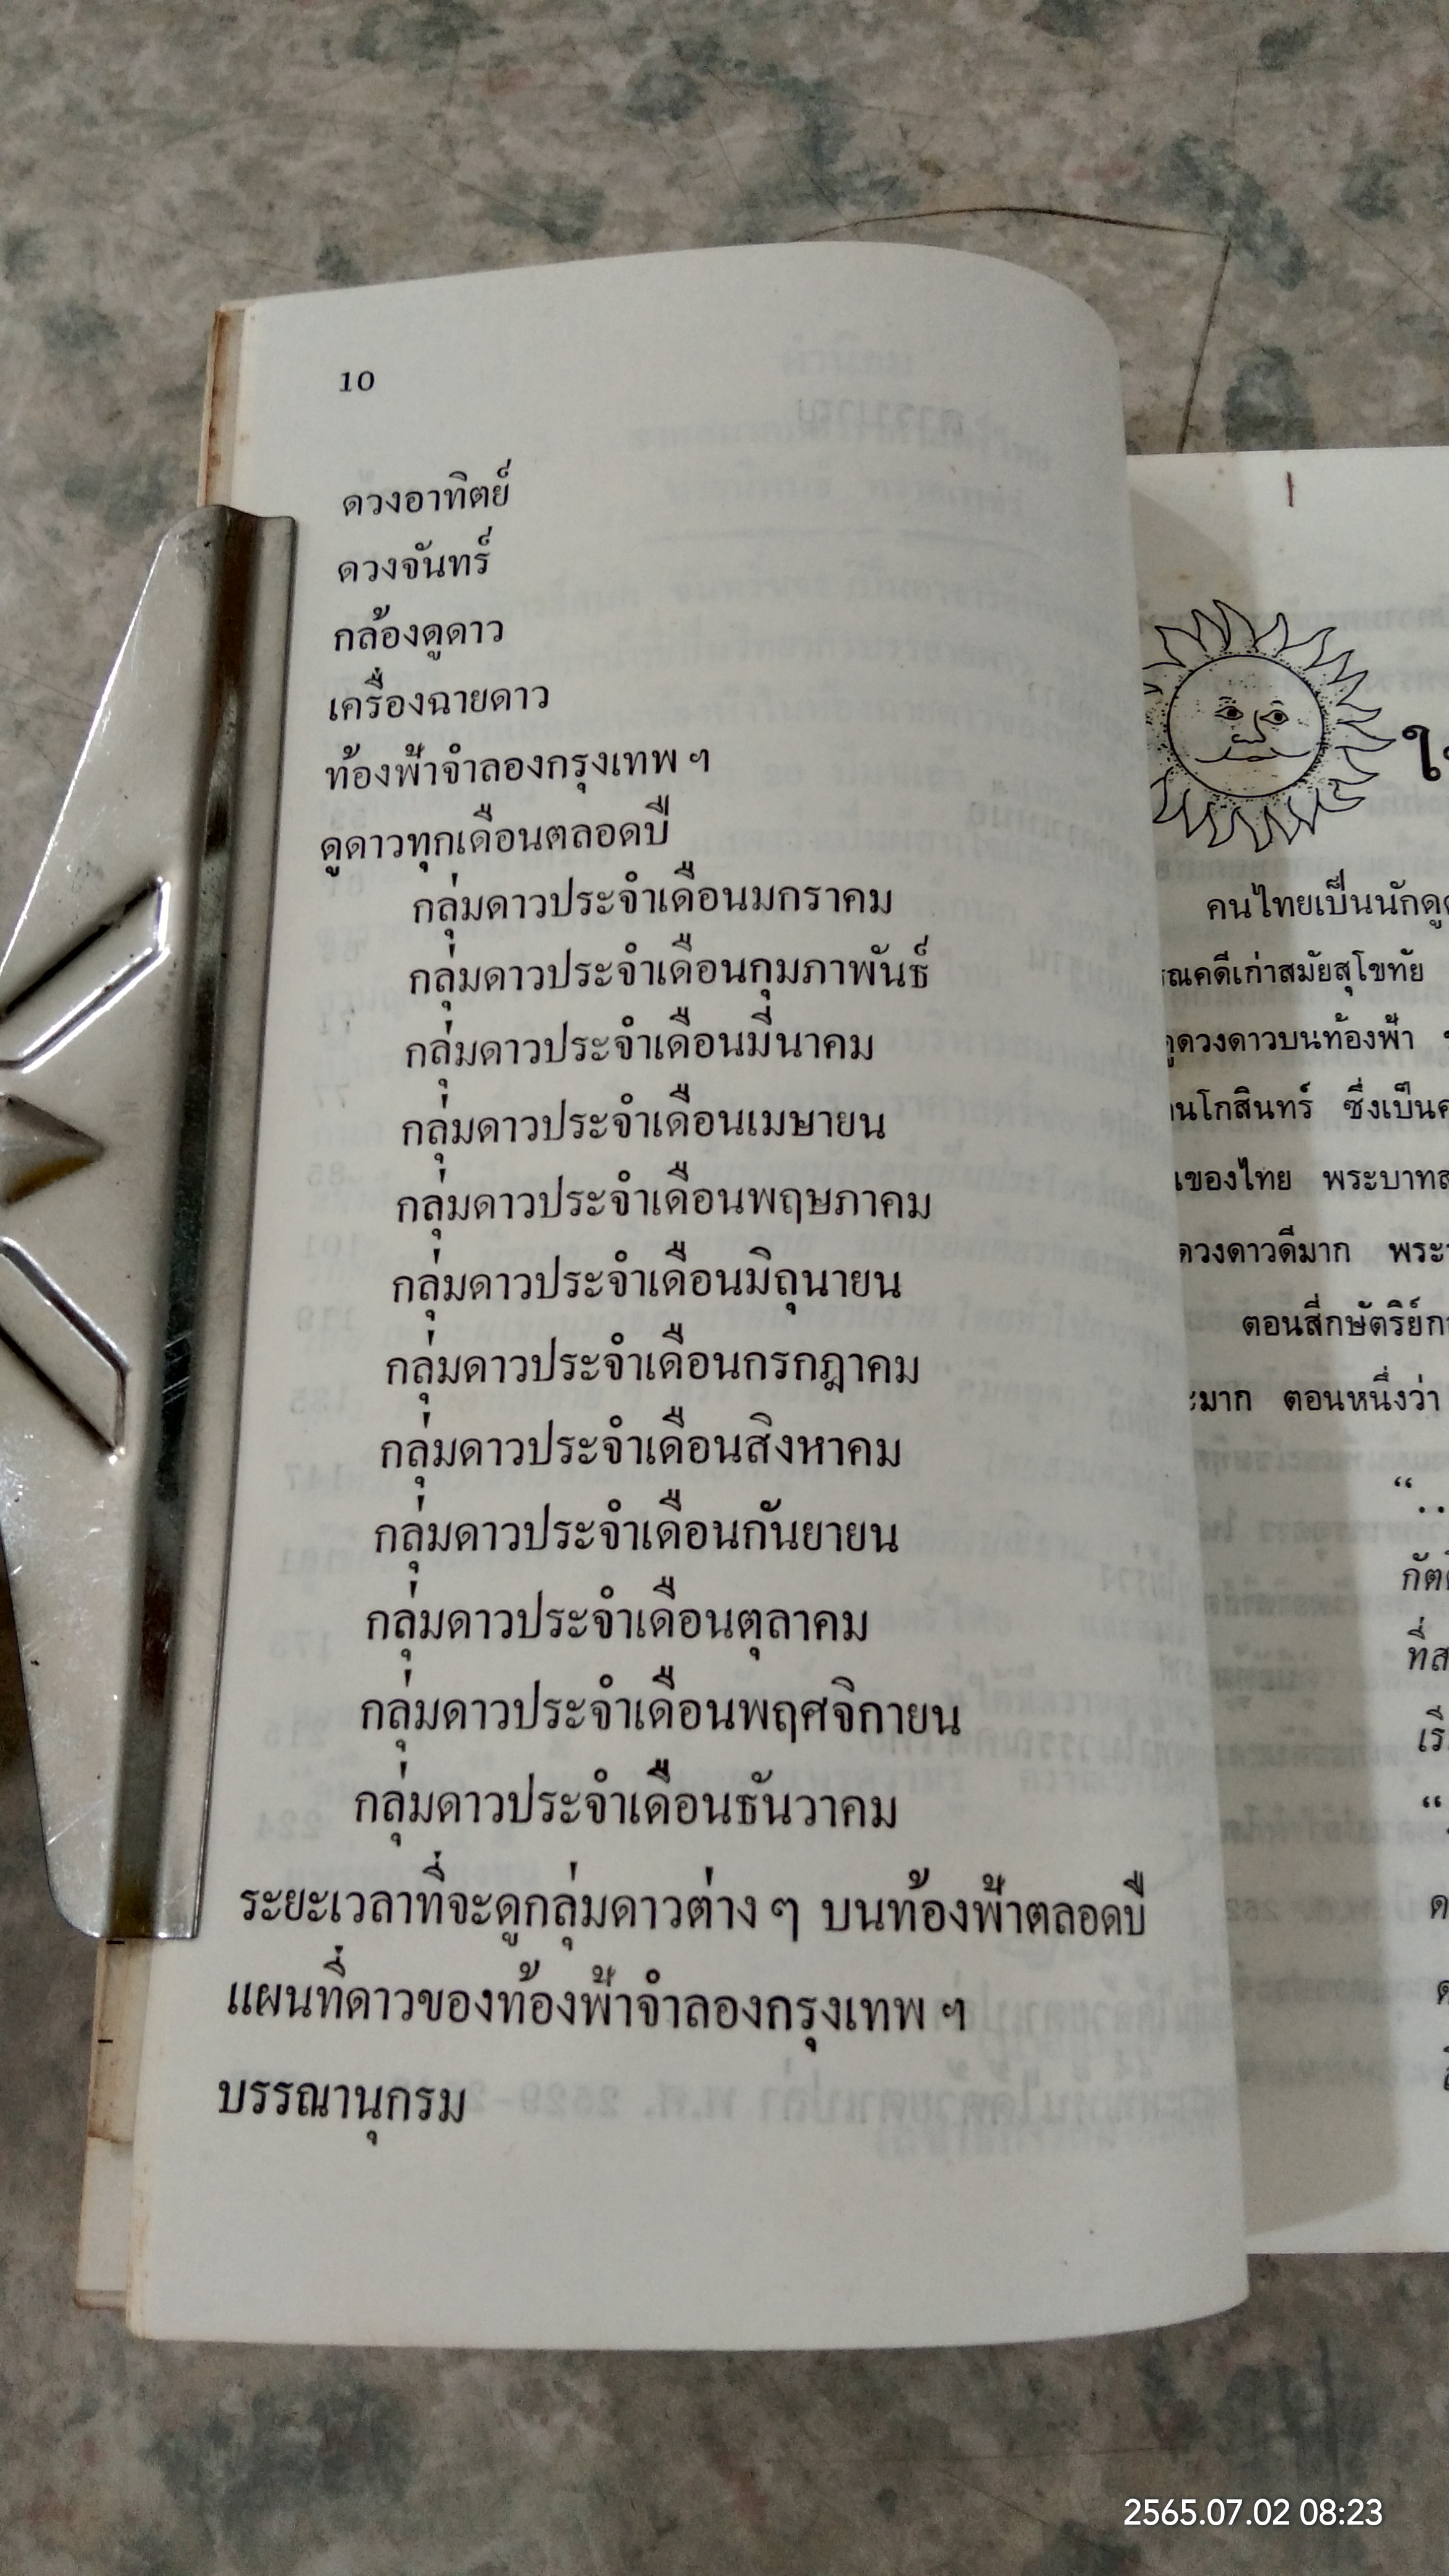 10
ดวงอาทิตย์
ดวงจันทร์
กล้องดูดาว
เครื่องฉายดาว
ท้องฟ้าจำลองกรุงเทพ ฯ
ดูดาวทุกเดือนตลอดปี
กลุ่มดาวประจำเดือนมกราคม
กลุ่มดาวประจำเดือนกุมภาพันธ์
กลุ่มดาวประจำเดือนมีนาคม
กลุ่มดาวประจำเดือนเมษายน
กลุ่มดาวประจำเดือนพฤษภาคม
กลุ่มดาวประจำเดือนมิถุนายน
กลุ่มดาวประจำเดือนกรกฎาคม
กลุ่มดาวประจำเดือนสิงหาคม
กลุ่มดาวประจำเดือนกันยายน
กลุ่มดาวประจำเดือนตุลาคม
กลุ่มดาวประจำเดือนพฤศจิกายน
กลุ่มดาวประจำเดือนธันวาคม
ระยะเวลาที่จะดูกลุ่มดาวต่าง ๆ บนท้องฟ้าตลอดปี
แผนที่ดาวของท้องฟ้าจำลองกรุงเทพ ฯ
บรรณานุกรม
คนไทยเป็นนักดู
รณคดีเก่าสมัยสุโขทัย
ดูดวงดาวบนท้องฟ้า
นโกสินทร์ ซึ่งเป็น
เของไทย พระบาท
ดวงดาวดีมาก พระ
ตอนสี่กษัตริย์
ะมาก ตอนหนึ่งว่า
2565.07.02 08:23